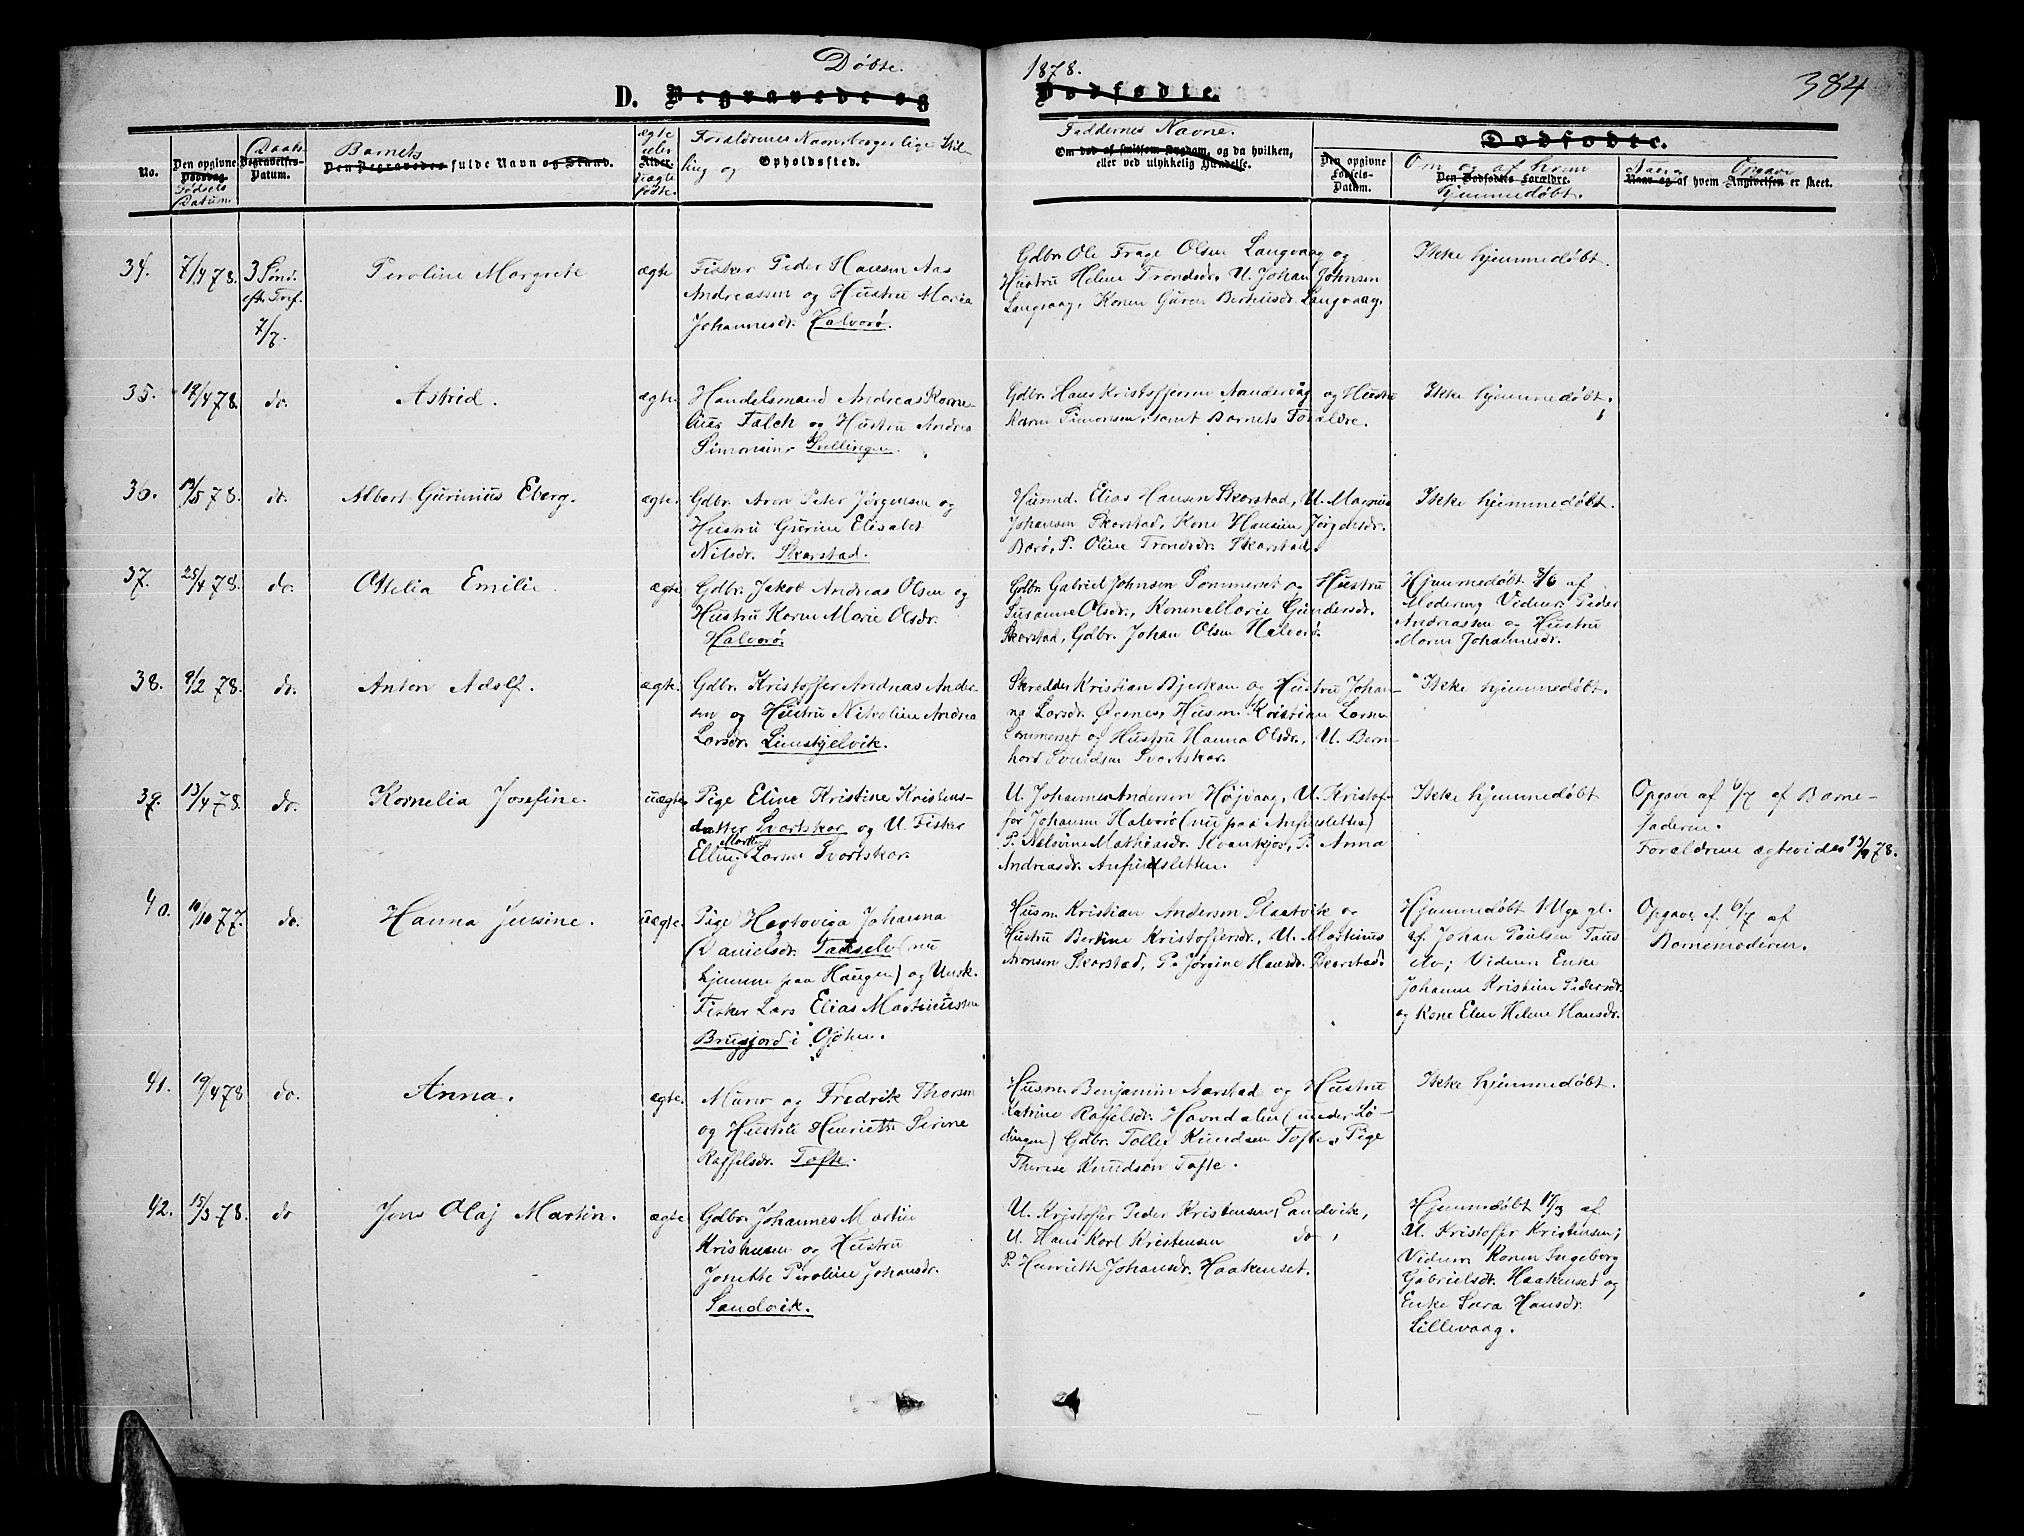 Døbte. 1878.
384
D. Begravede og Dødfødte.
No.
Den opgivne Dødsdag Fødsels Datum.
Daabs Begravelses-Datum.
Barnets Den Begravedes fulde Navn og Stand.
ægte eller Alder. uægte fødte.
Forældrenes Navn, borgerlige Stilling og Opholdssted.
Faddernes Navne.
Om død af smitsom Sygdom, og da hvilken,
eller ved ulykkelig Hændelse.
Dødfødte.
Den opgivne Fødsels-Datum.
Om og af hvem
Den Dødfødtes Forældre.
hjemmedøbt.
Naar og af hvem Angivelsen er skeet.
34. 7/4 78. 3 Sønd. eft. Tref. 7/7.
Peroline Margrete
ægte
Fisker Peder Hansen Aas
Andreassen og Hustru Maria
Johannesdr. Halvorø.
Gdbr. Ole Frage Olsen Langvaag og
Hustru Helene Trondsdr. U. Johan Johnsen
Langvaag, Konen Guren Berhusdr. Langvaag.
Ikke hjemmedøbt.
35. 19/4 78. do.
Astrid.
ægte.
Handelsmand Andreas Korne-
lius Falch og Hustru Andrea
Simonsen
Gdbr. Hans Kristoffersen og Hustru
Karen Simonsen, samt Barnets Forældre.
Ikke hjemmedøbt.
36. 13/5 78. do.
Albert Gurinius Eberg.
ægte.
Gdbr. Aron Peter Jørgensen og
Hustru Gurine Elisabet
Nilsdr. Skarstad.
Husmd. Elias Hansen Skarstad, U. Magnus
Johansen Skarstad, Kone Hansine Jørgdsdr.
Barø, P. Oline Trondsdr. Skarstad.
Ikke hjemmedøbt.
37. 25/4 78. do.
Ottelia Emilie.
ægte
Gdbr. Jakob Andreas Olsen og
Hustru Karen Marie Olsdr.
Halvorø.
Gdbr. Gabriel Johnsen Sommerset og Hustru
Susanne Olsdr., Konen Marie Gundersdr.
Skarstad, Gdbr. Johan Olsen Halvorø.
Hjemmedøbt 8/6 af
Moderen; Vidner: Peder
Andreassen og Hustru
Maren Johannesdr.
38. 9/2 78. do.
Anton Adolf.
ægte.
Gdbr. Kristoffer Andreas Ander-
sen og Hustru Nikoline Andrea
Larsdr. Limskjelvik.
Skrædder Kristian Bjerkan og Hustru Johan-
na Larsdr. Ørnes, Husm. Kristian Larsen
Sommerset og Hustru Hanna Olsdr., U. Bern-
hard Svendsen Svartskar.
Ikke hjemmedøbt.
39. 13/4 78. do.
Kornelia Josefine.
uægte.
Pige Eline Kristine Kristens-
datter Svartskar og U. Fisker
Elling Martin Larsen Svartskar.
U. Johannes Andersen Højvaag, U. Kristof-
fer Johansen Halvorø (nu paa Anfinsletten)
P. Nelsvine Mathiasdr. Svankjos, P. Anna
Andreasdr. Anfindsletten.
Ikke hjemmedøbt
Opgave af 6/7 af Barne-
faderen.
Forældrene ægteviedes 15/9 78.
40. 10/10 77. do.
Hanna Jensine.
uægte.
Pige Hartviga Johanna
Danielsdr. Tauselv (nu
hjemme paa Haugen) og Unsk.
Fisker Lars Elias Martinussen
Brugfjord i Ofoten.
Husm. Kristian Andersen Slaatvik og
Hustru Bertine Kristoffersdr., U. Martinus
Aronsen Skarstad, P. Jørgine Hansdr. Skarstad.
Hjemmedøbt 1 Uge gl.
af Johan Paulsen Taus-
elv; Vidner: Enke
Johanna Kristine Pedersdr.
og Kone Elen Helene Hansdr.
Opgave af 6/7 af
Barnemoderen.
41. 19/4 78 do.
Anna.
ægte.
Murer og Fredrik Thorsen
og Hustru Henriette Sirine
Raffelsdr. Tofte.
Husm. Benjamin Aarstad og Hustru
Katrine Raffelsdr. Havndalen (under Lø-
dingen) Gdbr. Tollef Knudsen Tofte, Pige
Therese Knudsen Tofte.
Ikke hjemmedøbt.
42. 15/3 78. do
Jens Olaj Martin.
ægte
Gdbr. Johannes Martin
Kristensen og Hustru
Jonette Peroline Johansdr.
Sandvik.
U. Kristoffer Peder Kristensen, Sandvik,
U. Hans Karl Kristensen do,
P. Henriette Johansdr. Haakenset.
Hjemmedøbt 17/3 af
U. Kristoffer Kristensen;
Vidner: Konen Ingeborg
Gabrielsdr. Haakenset og
Enke Sara Hansdr.
Lillevaag.